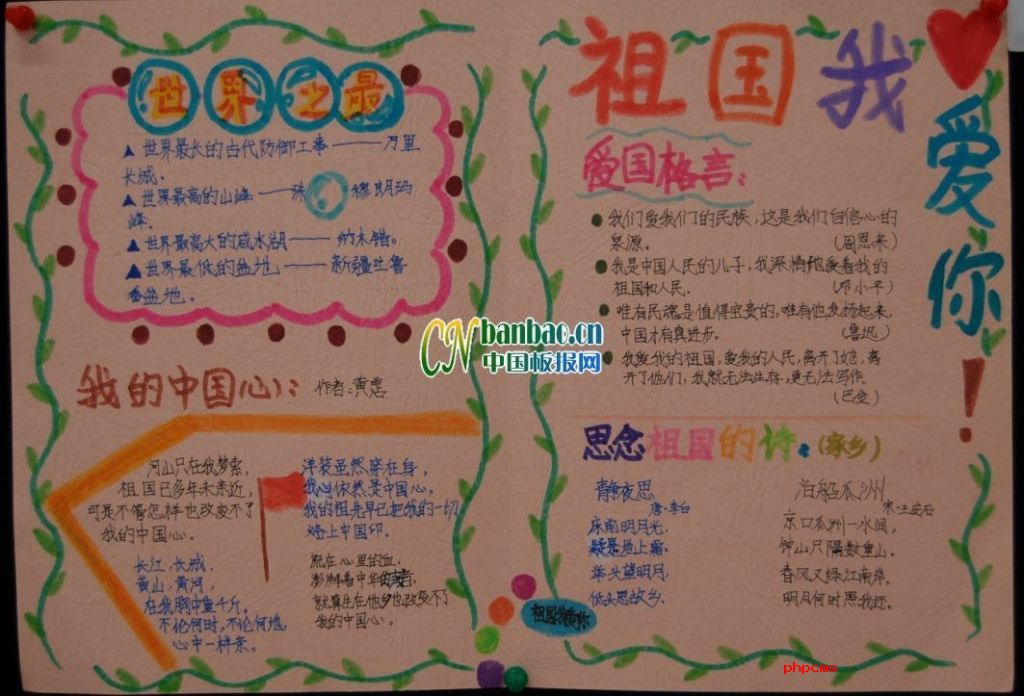 世界之最
▲世界最长的古代防御工事——万里
长城.
▲世界最高的山峰——珠穆朗玛
峰.
▲世界最高大的咸水湖——纳木错。
▲世界最低的盆地——新疆吐鲁
番盆地.
我的中国心: 作者:黄霑
河山只在我梦索,
祖国已多年未亲近,
可是不管怎样也改变不了
我的中国心.
长江,长城,
黄山,黄河,
在我胸中重千斤。
不论何时,不论何地,
心中一样亲。
洋装虽然穿在身,
我心依然是中国心,
我的祖先早已把我的一切
烙上中国印.
流在心里的血,
澎湃着中华的声音,
就算生在他乡也改变不了
我的中国心.
祖国我
爱你!
爱国格言:
●我们爱我们的民族,这是我们自信心的
泉源。
(周恩来)
●我是中国人民的儿子,我深情地爱着我的
祖国和人民.
(邓小平)
●唯有民魂是值得宝贵的,唯有他发扬起来,
中国才有真进步。
(鲁迅)
●我爱我的祖国,爱我的人民,离开了她,离
开了他们,我就无法生存,更无法写作.
(巴金)
思念祖国的诗:(家乡)
静夜思
唐·李白
床前明月光.
疑是地上霜.
举头望明月,
低头思故乡.
泊船瓜洲
宋·王安石
京口瓜洲一水间,
钟山只隔数重山.
春风又绿江南岸,
明月何时照我还.
CN banbao.cn
中国板报网
phpcms